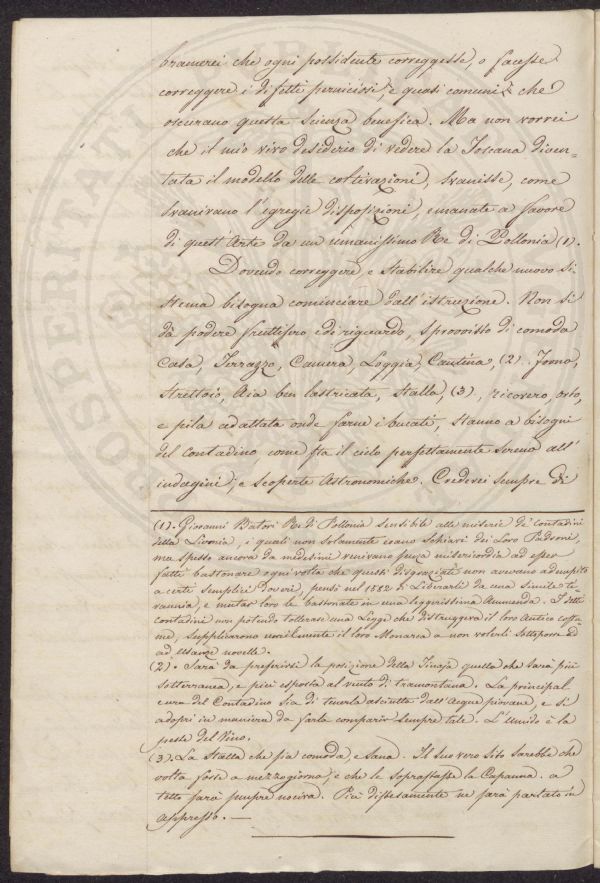 bramerei che ogni possidente correggesse, o facesse
correggere i difetti perniciosi, e quasi comuni che
oscurano questa Scienza benefica. Ma non vorrei
che il mio vivo desiderio di vedere la Toscana diven-
tata il modello delle coltivazioni, svanisse, come
svanirano l'egregie disposizioni, emanate a favore
di quest'Arte da un umanissimo Re di Pollonia (1).
Dovendo correggere e stabilire qualche nuovo Si-
stema bisogna cominciare dall'istruzione. Non si
dà podere fruttifero e di riguardo, sprovvisto di comoda
Casa, Terrazzo, Camera, Loggia, Cantina, (2). Forno,
Strettoio, Aia ben lastricata, Stalla, (3), ricovero, orto,
e pila adattata onde farne i bucati, stanno a bisogni
del Contadino come sta il cielo perfettamente sereno all'
indagini, e scoperte Astronomiche. Crederei sempre di
(1). Giovanni Batori Re di Pollonia sensibile alle miserie dei Contadini
della Livonia, i quali non solamente erano Schiavi dei Loro Padroni,
ma spesso ancora da medesimi venivano senza misericordia ad esser
fatti bastonare ogni volta che questi disgraziati non avevano adempito
a certi semplici doveri, pensò nel 1582 di Liberarli da una simile ti-
rannia, e mutar loro le bastonate in una leggerissima Ammenda. I detti
contadini non potendo tollerare una Legge che distruggeva il loro Antico costu-
me, supplicarono umilmente il loro Monarca a non volerli sottoporre ad
ad usanze novelle.
(2). Sarà da preferirsi la posizione della Tinaja quella che sarà più
sotterranea, e più esposta al vento di tramontana. La principal
cura del Contadino sia di tenerla asciutta dall'acque piovane, e si
adopri in maniera da farla comparir sempre tale. L'umido è la
peste del Vino.
(3). La Stalla che sia comoda, e sana. Il suo vero Sito sarebbe che
volta fosse a mezzogiorno, e che le soprastasse la Capanna. a
tetto sarà sempre nociva. Più distesamente ne sarà parlato in
appresso. —
PROSPERITATI